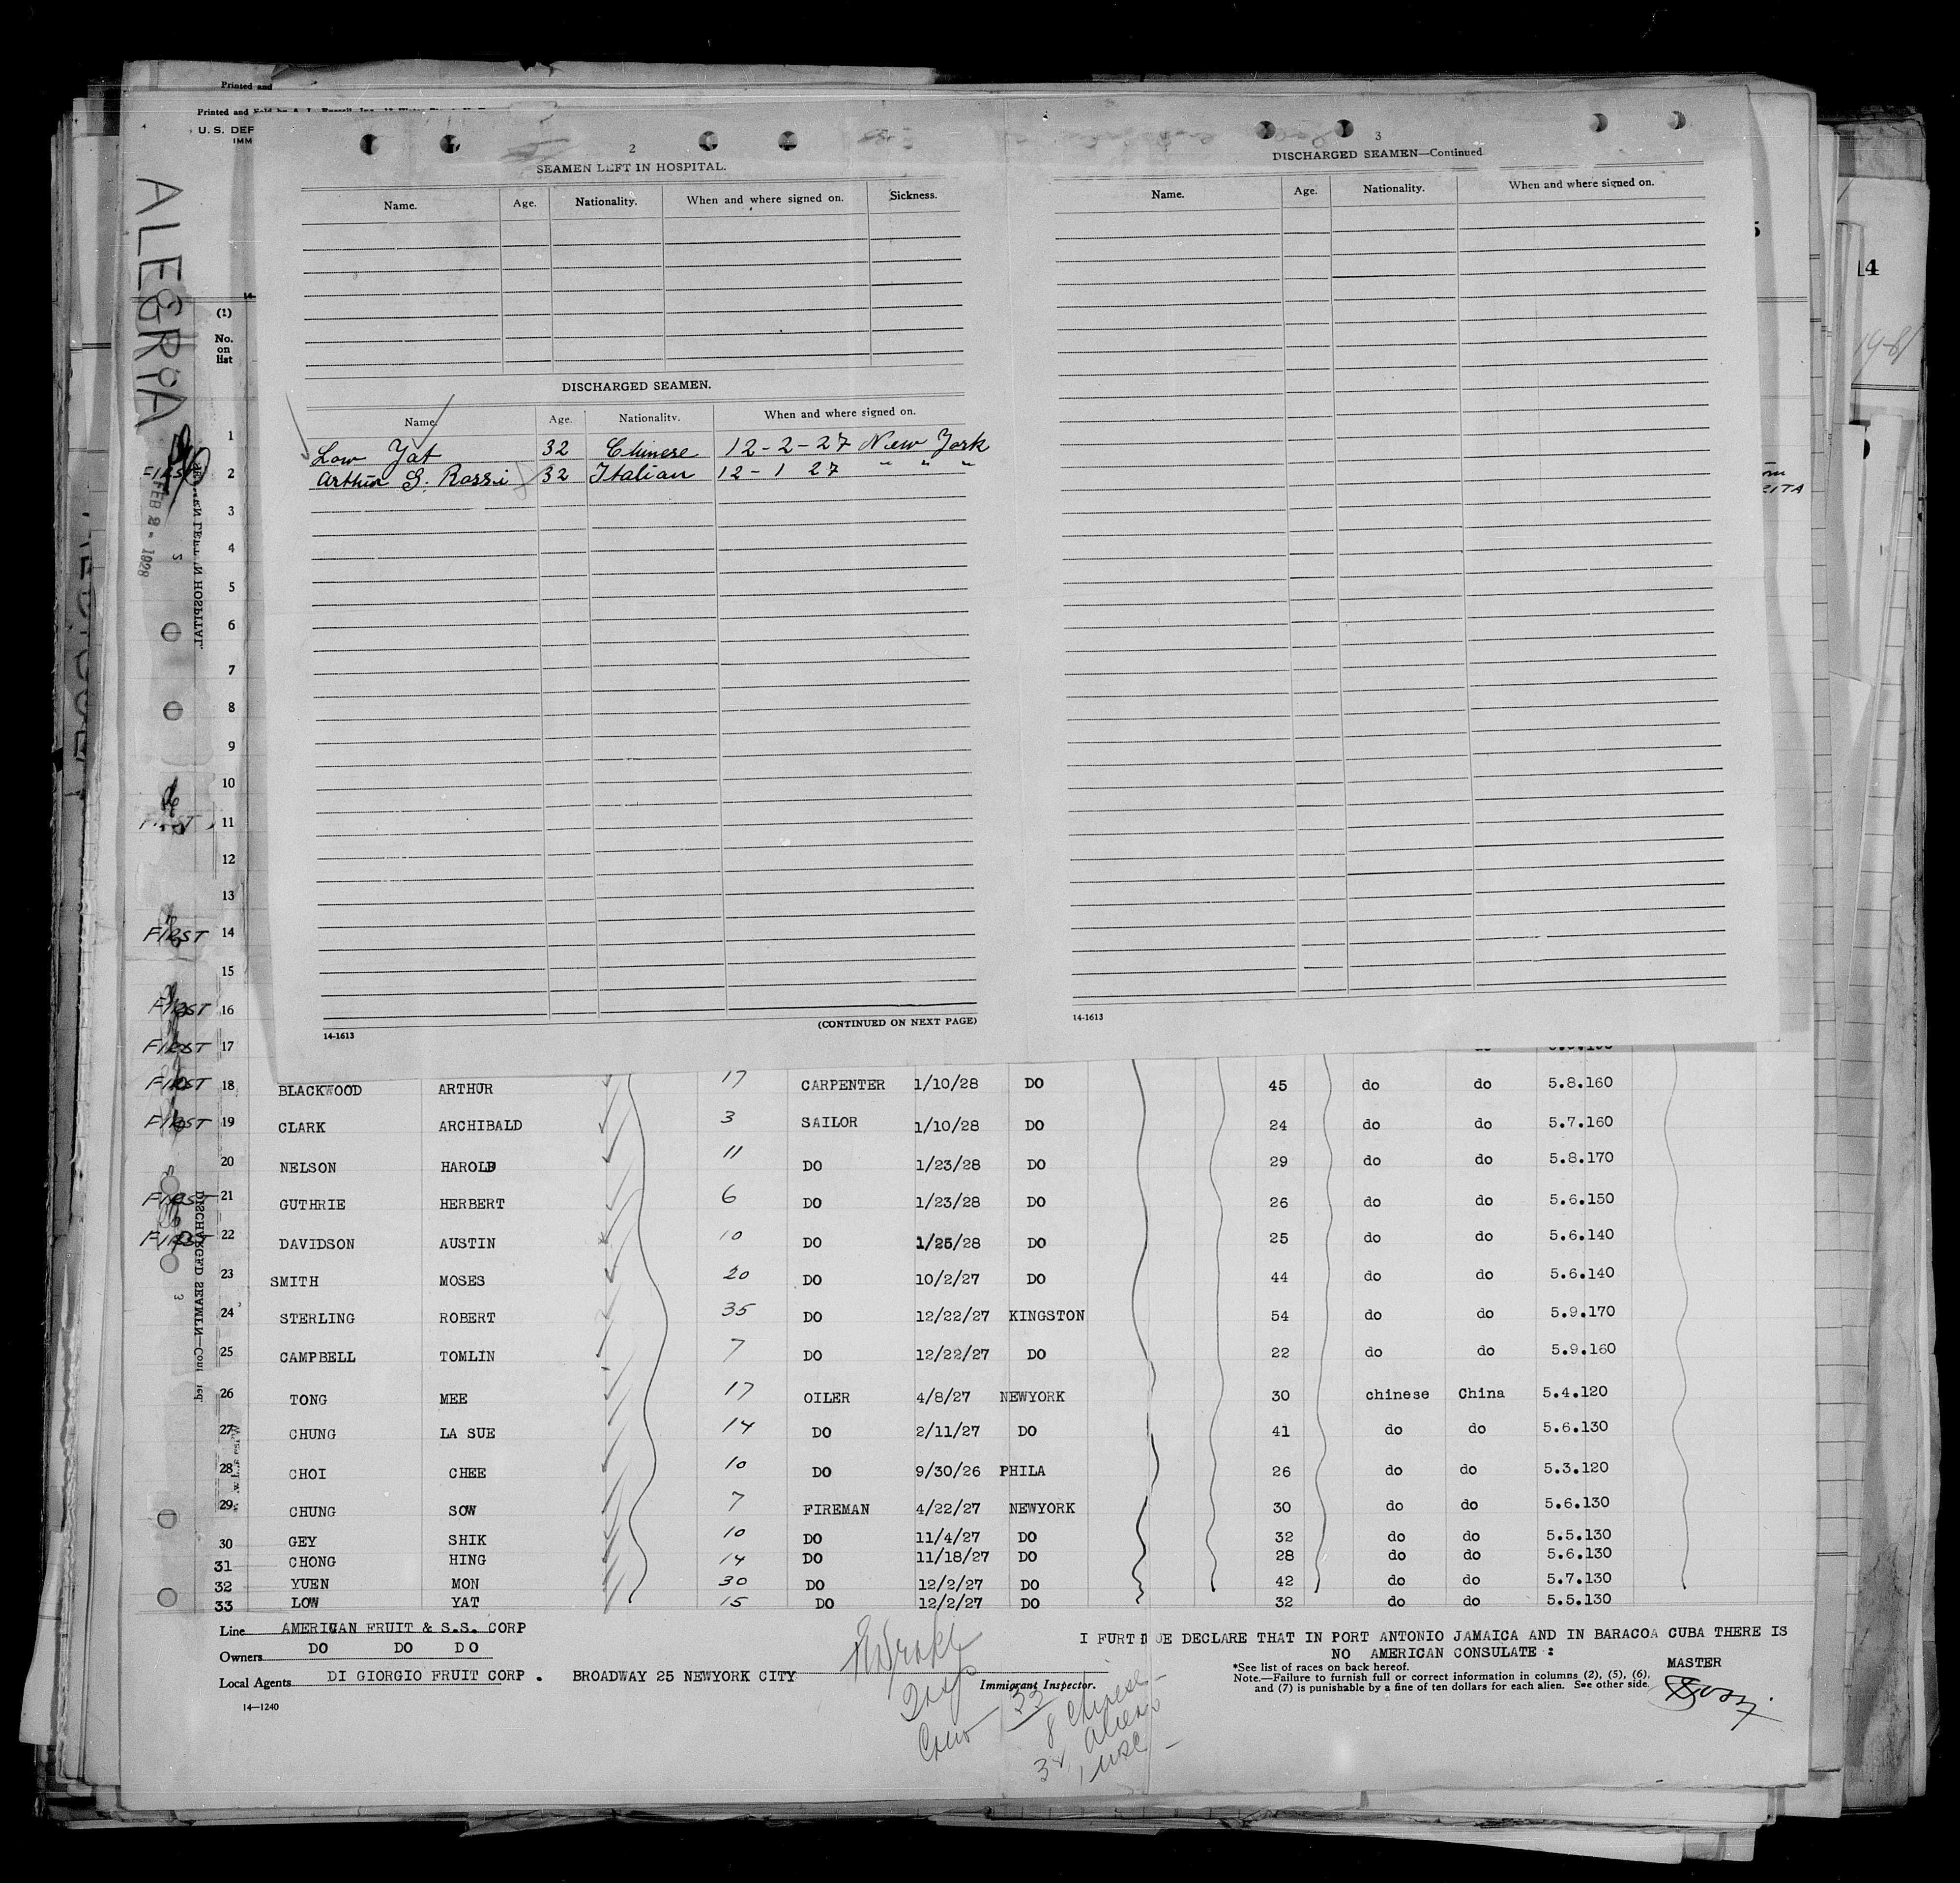 Printed and
Printed and Sold by A. L. Russell, Inc.
U. S. DEP
IMM
ALEGRIA
FEB 2 - 1928
(1)
No.
on
list
2
SEAMEN LEFT IN HOSPITAL.
Name. Age. Nationality. When and where signed on. Sickness.
DISCHARGED SEAMEN.
Name. Age. Nationality. When and where signed on.
Low Yat 32 Chinese 12-2-27 New York
Arthur G. Rossi 32 Italian 12-1 27 " " "
14-1613 (CONTINUED ON NEXT PAGE)
3
DISCHARGED SEAMEN—Continued
Name. Age. Nationality. When and where signed on.
14-1613
14
1
FIRST 2
3
4
5
6
7
8
9
10
FIRST 11
12
13
FIRST 14
15
FIRST 16
FIRST 17
FIRST 18 BLACKWOOD ARTHUR 17 CARPENTER 1/10/28 DO 45 do do 5.8.160
FIRST 19 CLARK ARCHIBALD 3 SAILOR 1/10/28 DO 24 do do 5.7.160
20 NELSON HAROLD 11 DO 1/23/28 DO 29 do do 5.8.170
FIRST 21 GUTHRIE HERBERT 6 DO 1/23/28 DO 26 do do 5.6.150
FIRST 22 DAVIDSON AUSTIN 10 DO 1/25/28 DO 25 do do 5.6.140
23 SMITH MOSES 20 DO 10/2/27 DO 44 do do 5.6.140
24 STERLING ROBERT 35 DO 12/22/27 KINGSTON 54 do do 5.9.170
25 CAMPBELL TOMLIN 7 DO 12/22/27 DO 22 do do 5.9.160
26 TONG MEE 17 OILER 4/8/27 NEWYORK 30 chinese China 5.4.120
27 CHUNG LA SUE 14 DO 2/11/27 DO 41 do do 5.6.130
28 CHOI CHEE 10 DO 9/30/26 PHILA 26 do do 5.3.120
29 CHUNG SOW 7 FIREMAN 4/22/27 NEWYORK 30 do do 5.6.130
30 GEY SHIK 10 DO 11/4/27 DO 32 do do 5.5.130
31 CHONG HING 14 DO 11/18/27 DO 28 do do 5.6.130
32 YUEN MON 30 DO 12/2/27 DO 42 do do 5.7.130
33 LOW YAT 15 DO 12/2/27 DO 32 do do 5.5.130
Line AMERICAN FRUIT & S.S. CORP
Owners DO DO DO
Local Agents DI GIORGIO FRUIT CORP. BROADWAY 25 NEWYORK CITY
14—1240
Immigrant Inspector.
Crew 33
8 Chinese
32 Aliens
1 USC
I FURTHUE DECLARE THAT IN PORT ANTONIO JAMAICA AND IN BARACOA CUBA THERE IS
NO AMERICAN CONSULATE :
*See list of races on back hereof.
Note.—Failure to furnish full or correct information in columns (2), (5), (6),
and (7) is punishable by a fine of ten dollars for each alien. See other side.
MASTER
SEAMEN LEFT IN HOSPITAL
DISCHARGED SEAMEN—Continued